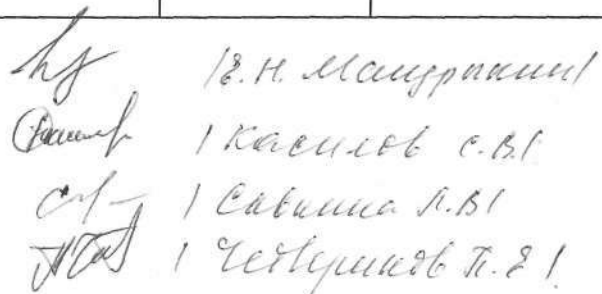 /Е.Н. Мандрыкин/
/Касилов С.В./
/Савина Л.В/
/Четвериков П.Е/.